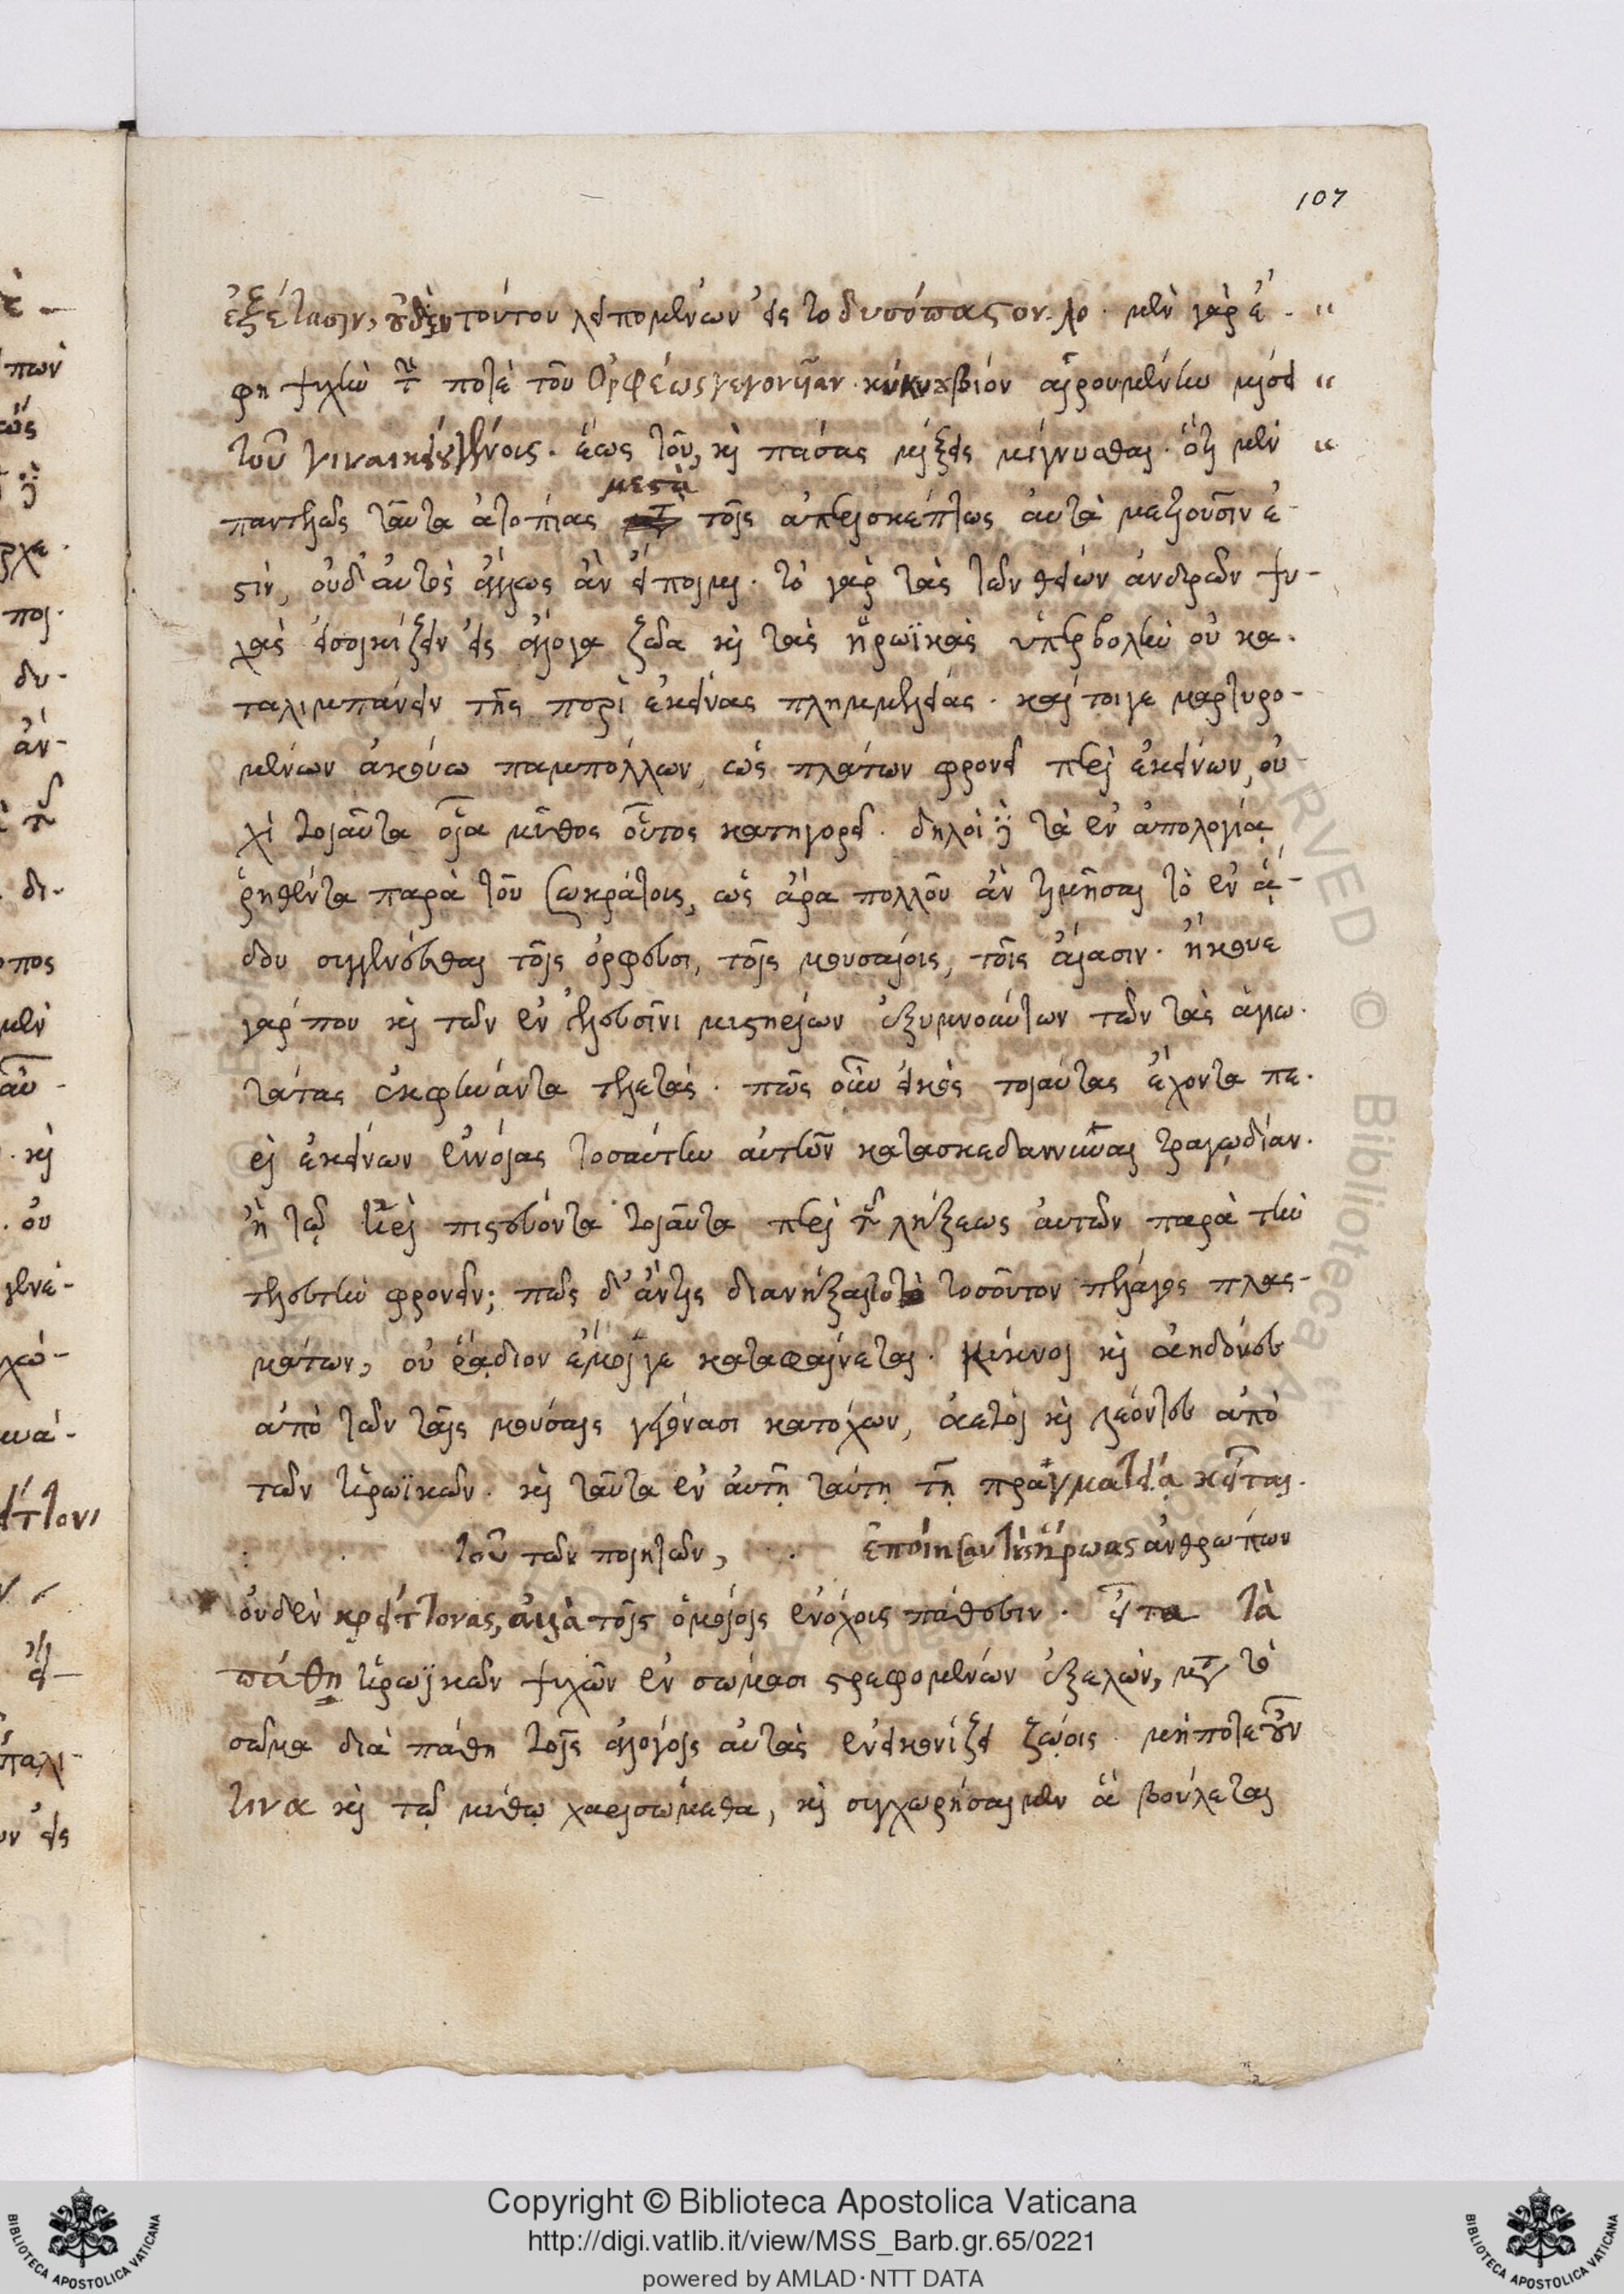 107
ἐξέτασιν, οὐδὲν τούτου λειπομένων εἰς τὸ δυσύποιστον. λο. μὲν γὰρ ἔ- "
φη ψυχὴν τήν ποτε τοῦ Ὀρφέως γεγονυῖαν κύκνου βίον αἱρουμένην μίσει "
τοῦ γυναικείου γένους. ἕως τοῦ, καὶ πάσας μίξεις μίγνυσθαι. ὅτι μὲν "
μεστὰ
παντελῶς ταῦτα ἀτοπίας τοῖς ἀπερισκέπτως αὐτὰ μετιοῦσιν ἐ-
στὶν, οὐδ' αὐτὸς ἄλλως ἂν εἴποιμι. τὸ γὰρ τὰς τῶν θείων ἀνδρῶν ψυ-
χὰς εἰσοικίζειν εἰς ἄλογα ζῶα καὶ τὰς ἡρωϊκὰς ὑπερβολὴν οὐ κα-
ταλιμπάνειν τῆς περὶ ἐκείνας πλημμελείας. καίτοιγε μαρτυρο-
μένων ἀκούω παμπόλλων, ὡς πλάτων φρονεῖ περὶ ἐκείνων, οὐ-
χὶ τοιαῦτα οἷα μῦθος οὗτος κατηγορεῖ. δηλοῖ δὲ τὰ ἐν ἀπολογίᾳ
ῥηθέντα παρὰ τοῦ Σωκράτους, ὡς ἄρα πολλοῦ ἂν τιμῆσαι τὸ ἐν ᾅ-
δου συγγενέσθαι τοῖς ὀρφεῦσι, τοῖς μουσαίοις, τοῖς αἴασιν. ἤκουε
γάρ που καὶ τῶν ἐν ἐλευσῖνι μυστηρίων ἐξυμνούντων τῶν τὰς ἁγιω-
τάτας ἐκφήναντα τελετάς. πῶς οὖν εἰκὸς τοιαύτας ἔχοντα πε-
ρὶ ἐκείνων ἐννοίας τοσαύτην αὐτῶν κατασκεδαννύναι τραγῳδίαν.
ἢ τῷ πιστεύοντα τοιαῦτα περὶ τῆς λήξεως αὐτῶν παρὰ τὴν
τελευτὴν φρονεῖν; πῶς δ' ἄν τις διανήξαιτο τοσοῦτον πέλαγος πλασ-
μάτων, οὐ ῥᾴδιον ἔμοιγε καταφαίνεται. κύκνοι καὶ ἀηδόνες
ἀπὸ τῶν ταῖς μούσαις γεγόνασι κατόχων, ἀετοὶ καὶ λέοντες ἀπὸ
τῶν ἡρωϊκῶν. καὶ ταῦτα ἐν αὐτῇ ταύτῃ τῇ πραγματείᾳ κεῖται.
τοῦ τῶν ποιητῶν, ἐποίησαν τοὺς ἥρωας ἀνθρώπων
οὐδὲν κρείττονας, ἀλλὰ τοῖς ὁμοίοις ἐνόχους πάθεσιν. εἶτα τὰ
πάθη ἡρωϊκῶν ψυχῶν ἐν σώμασι στρεφομένων ἐξελὼν, μετὰ τὸ
σῶμα διὰ πάθη τοῖς ἀλόγοις αὐτὰς ἐνεικονίζει ζῴοις. μήποτε οὖν
τινα καὶ τῷ μύθῳ χαρισώμεθα, καὶ συγχωρήσαιμεν ἃ βούλεται
Copyright © Biblioteca Apostolica Vaticana
http://digi.vatlib.it/view/MSS_Barb.gr.65/0221
powered by AMLAD·NTT DATA